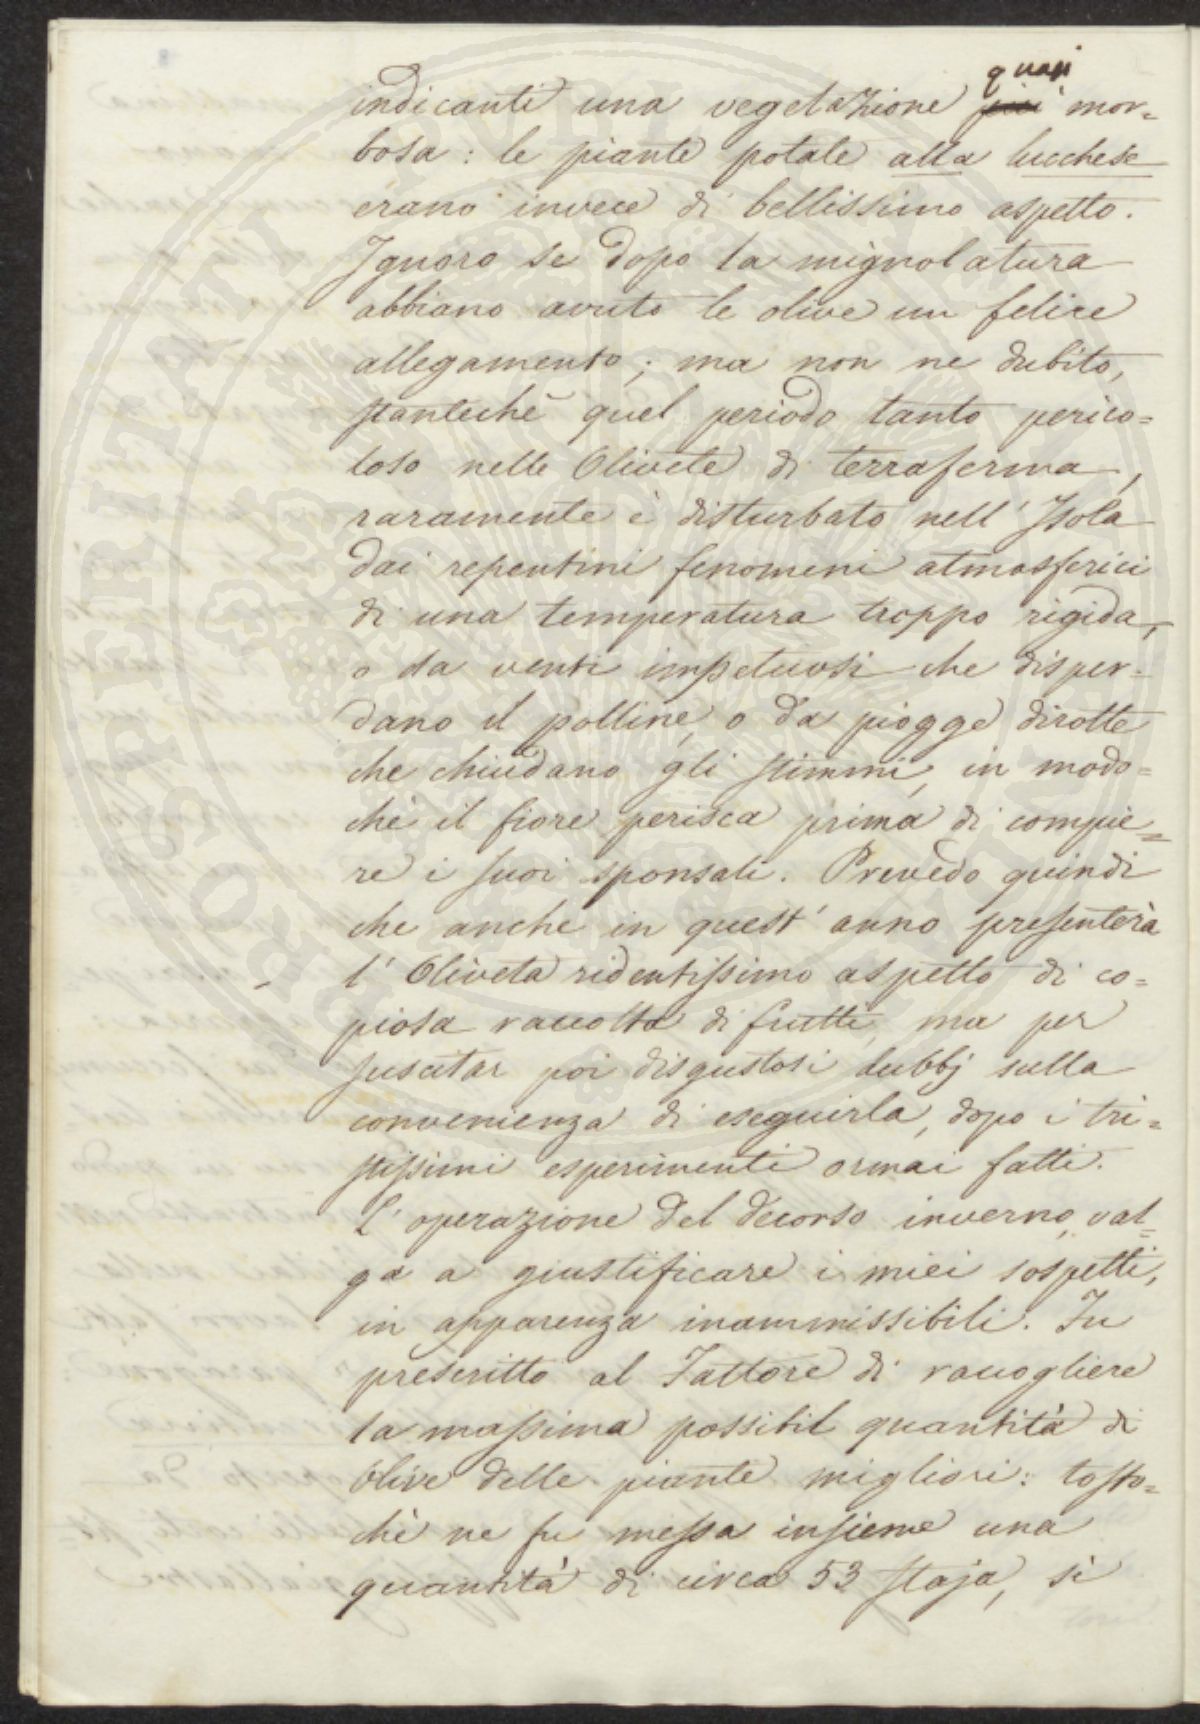 quasi
indicanti una vegetazione più mor=
bosa: le piante potate alla lucchese
erano invece di bellissimo aspetto.
Ignoro se dopo la mignolatura
abbiano avuto le olive un felice
allegamento; ma non ne dubito,
stantechè quel periodo tanto perico=
loso nelle Olivete di terraferma,
raramente è disturbato nell'Isola
dai repentini fenomeni atmosferici
di una temperatura troppo rigida,
o da venti impetuosi che disper=
dano il polline, o da piogge dirotte
che chiudano gli stimmi, in modo=
chè il fiore perisca prima di compie=
re i suoi sponsali. Prevedo quindi
che anche in quest'anno presenterà
l'Oliveta ridentissimo aspetto di co=
piosa raccolta di frutti, ma per
suscitar poi disgustosi dubbj sulla
convenienza di eseguirla, dopo i tri=
stissimi esperimenti ormai fatti.
L'operazione del decorso inverno, val=
ga a giustificare i miei sospetti,
in apparenza inammissibili. Fu
prescritto al Fattore di raccogliere
la massima possibil quantità di
Olive delle piante migliori: tosto=
chè ne fu messa insieme una
quantità di circa 53 staja, si
PROSPERITATI PVBLICAE